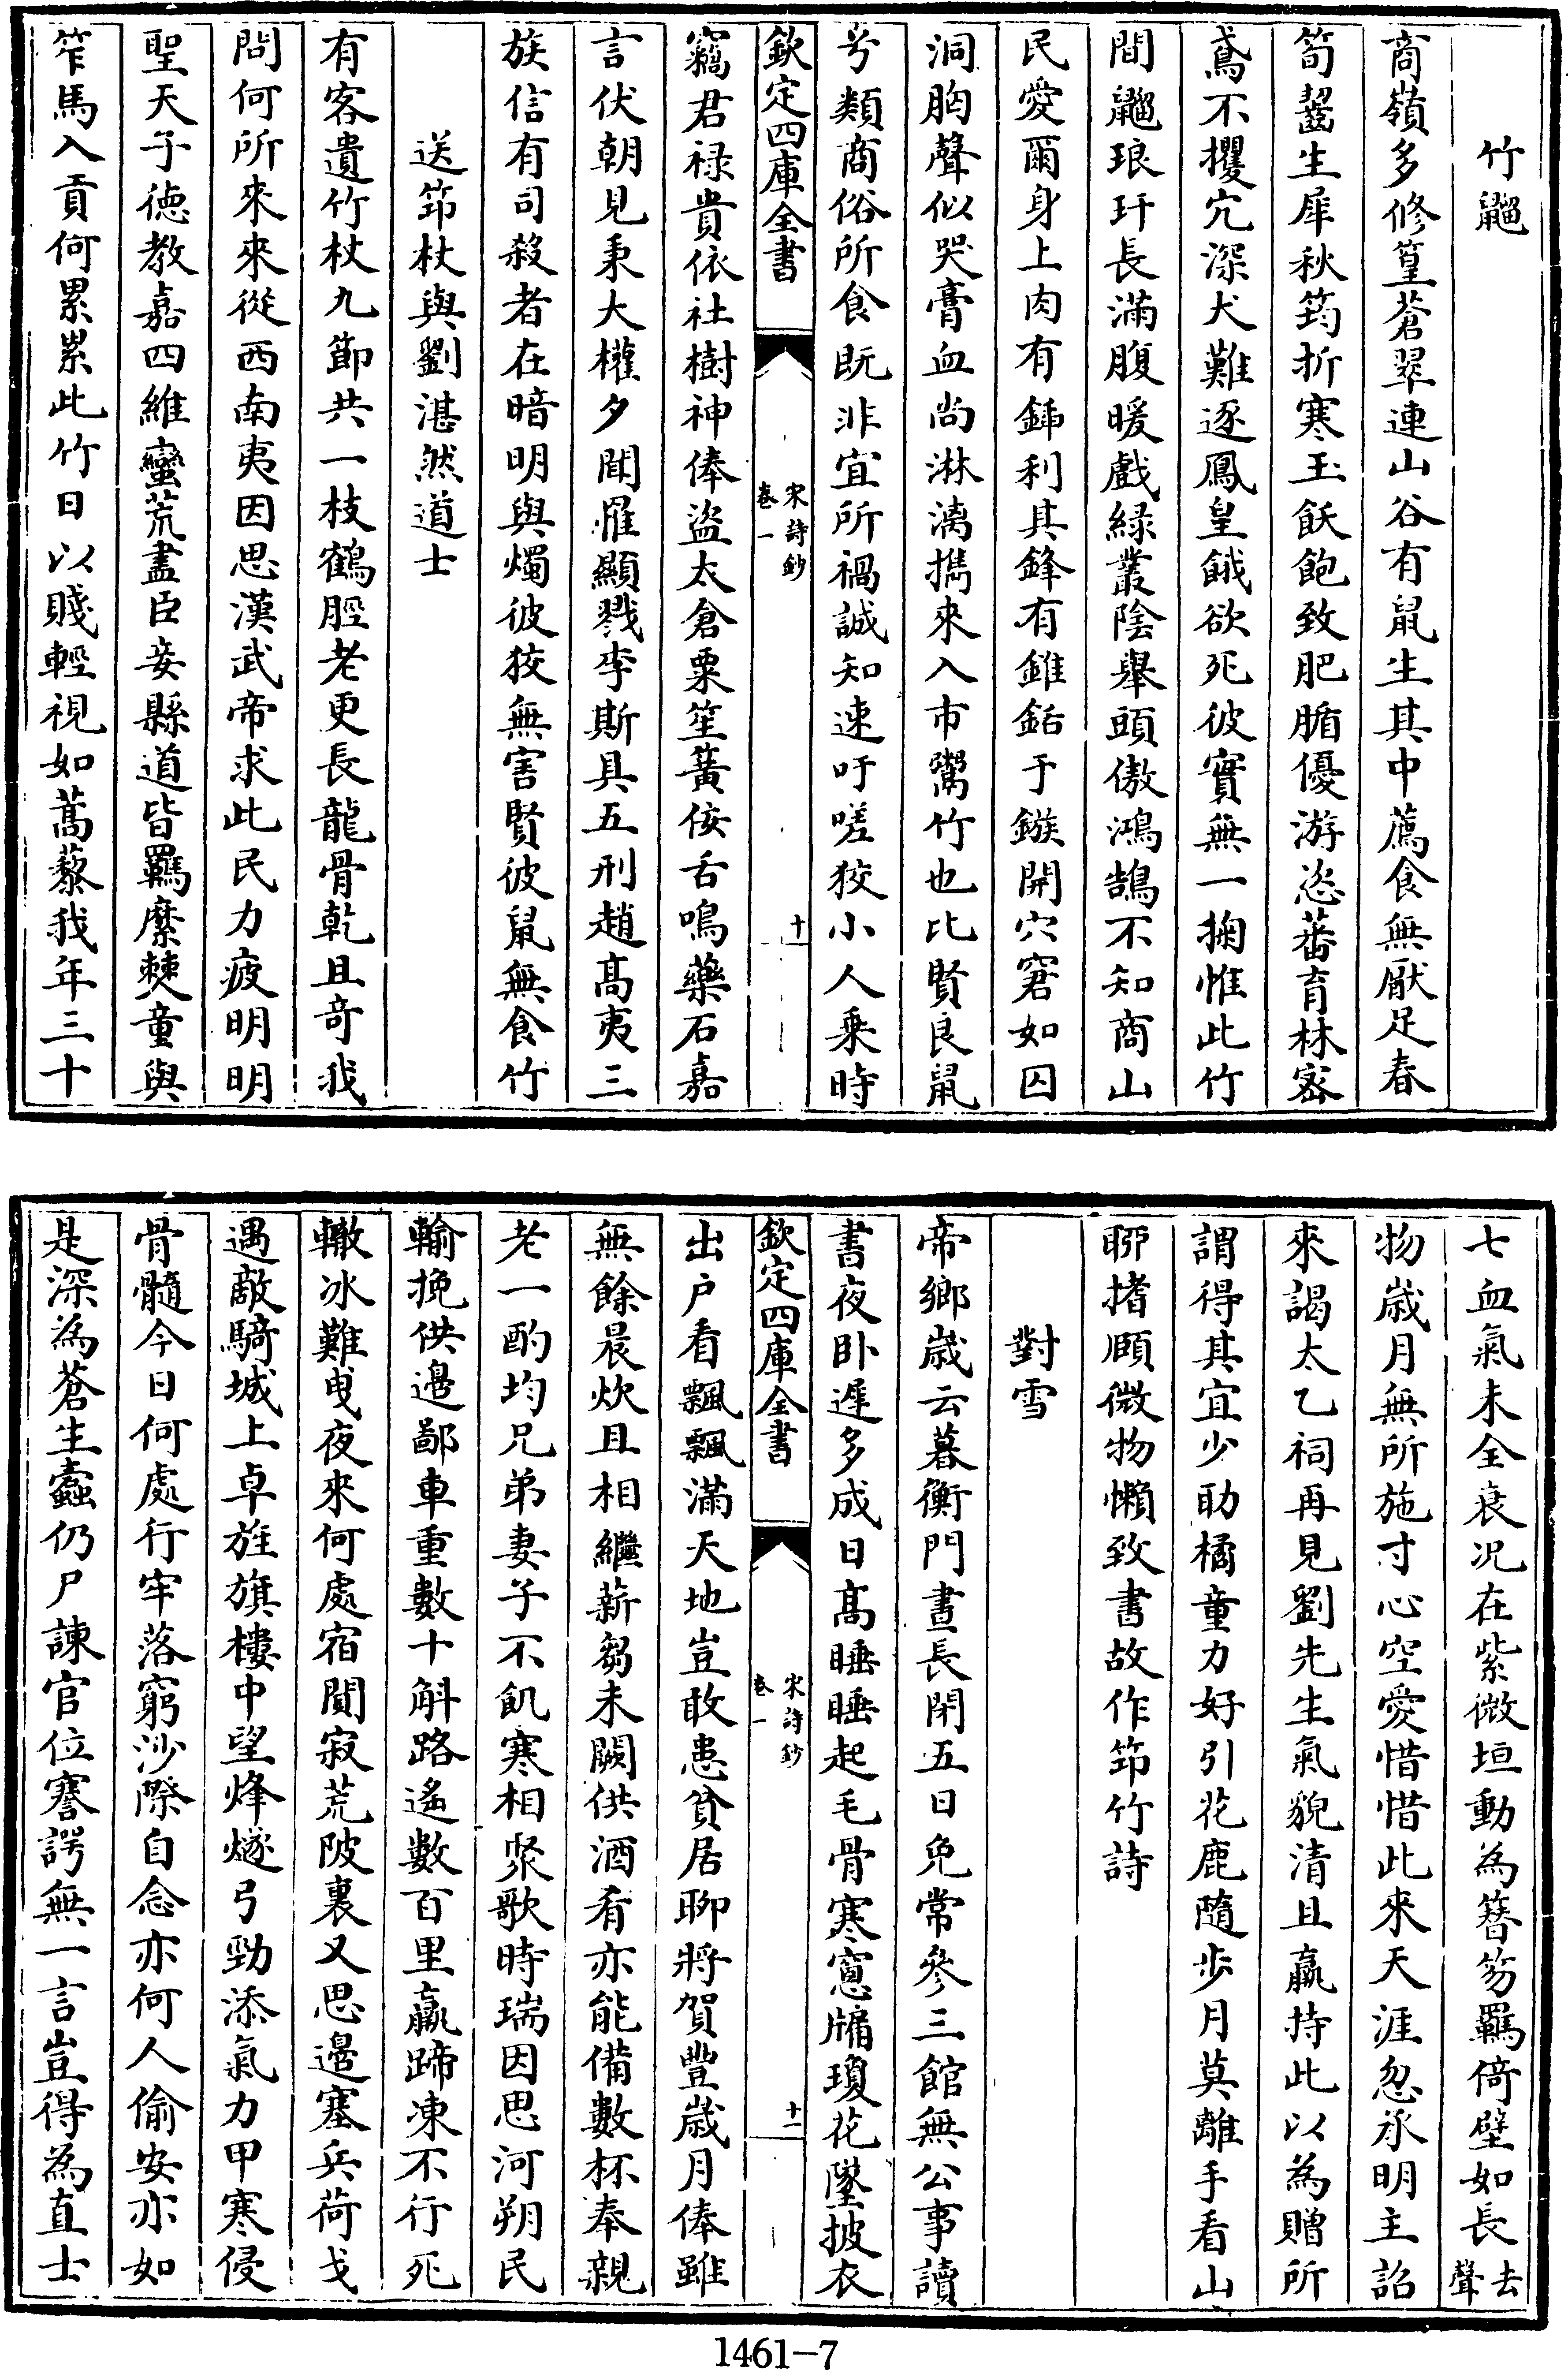 竹䶉
商嶺多修篁蒼翠連山谷有鼠生其中薦食無厭足春
筍齧生犀秋筠折寒玉飫飽致肥腯優游恣蕃育林密
鳶不攫穴深犬難逐鳳皇餓欲死彼實無一掬惟此竹
間䶉琅玕長滿腹暖戲緑叢陰舉頭傲鴻鵠不知商山
民愛爾身上肉有鍤利其鋒有錐銛于鏃開穴窘如囚
洞胸聲似哭膏血尚淋漓擕來入市鬻竹也比賢良鼠
兮類商俗所食既非宜所禍誠知速吁嗟狡小人乗時
欽定四庫全書
宋詩鈔
卷一
十
竊君禄貴依社樹神俸盜太倉粟笙簧佞舌鳴藥石嘉
言伏朝見秉大權夕聞罹顯戮李斯具五刑趙髙夷三
族信有司殺者在暗明與燭彼狡無害賢彼鼠無食竹
送笻杖與劉湛然道士
有客遺竹杖九節共一枝鶴脛老更長龍骨乾且竒我
問何所來來從西南夷因思漢武帝求此民力疲明明
聖天子徳教嘉四維蠻荒盡臣妾縣道皆羈縻僰童與
笮馬入貢何累累此竹日以賤輕視如蒿藜我年三十
七血氣未全衰况在紫微垣動為簪笏羈倚壁如長去聲
物嵗月無所施寸心空愛惜惜此來天涯忽承明主詔
來謁太乙祠再見劉先生氣貌清且羸持此以為贈所
謂得其宜少助橘童力好引花鹿隨歩月莫離手看山
聊搘頤微物懶致書故作笻竹詩
對雪
帝鄉嵗云暮衡門晝長閉五日免常參三館無公事讀
書夜卧遲多成日髙睡睡起毛骨寒窻牖瓊花墜披衣
欽定四庫全書
宋詩鈔
卷一
十一
出户看飄飄滿天地豈敢患貧居聊將賀豐嵗月俸雖
無餘晨炊且相繼薪芻未闕供酒肴亦能備數杯奉親
老一酌均兄弟妻子不飢寒相聚歌時瑞因思河朔民
輸挽供邉鄙車重數十斛路遙數百里羸蹄凍不行死
轍冰難曵夜來何處宿闃寂荒陂裏又思邉塞兵荷戈
遇敵騎城上卓旌旗樓中望烽燧弓勁添氣力甲寒侵
骨髓今日何處行牢落窮沙際自念亦何人偷安亦如
是深為蒼生蠧仍尸諫官位謇諤無一言豈得為直士
1461-7